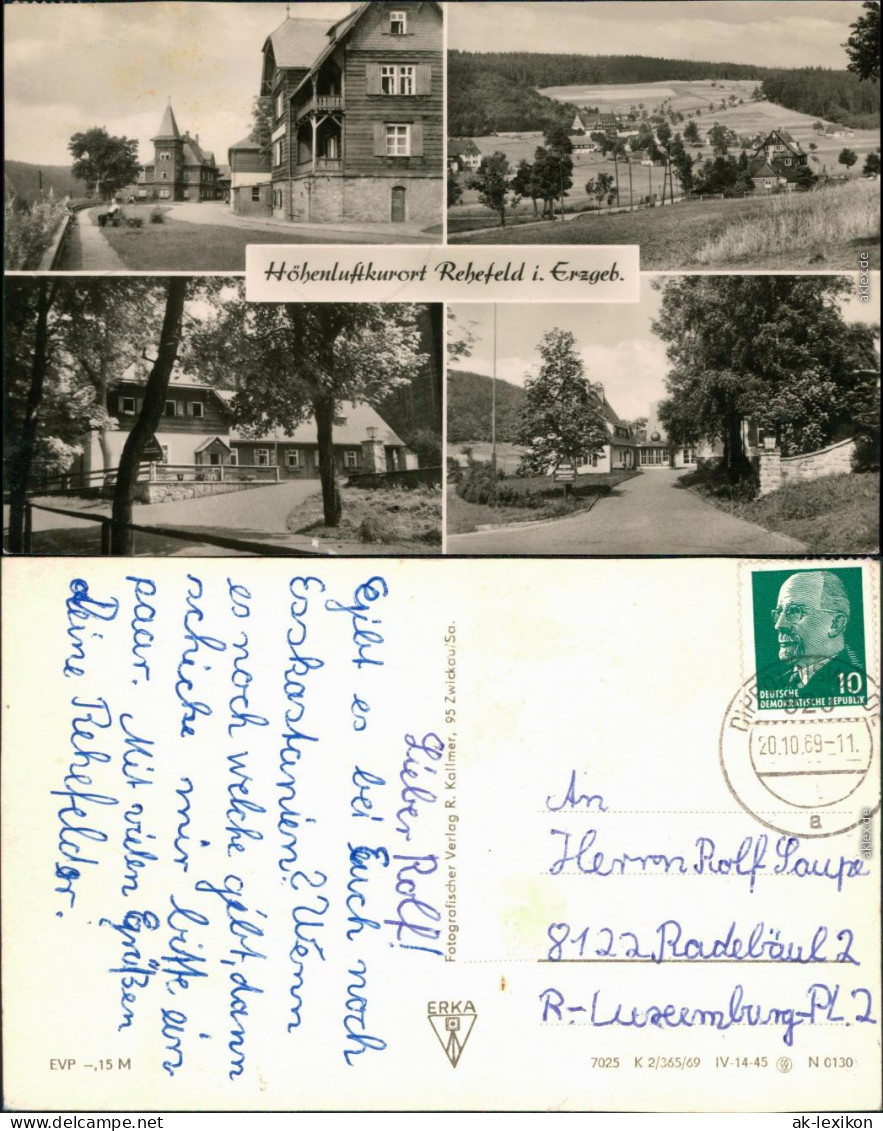 Höhenluftkurort Rehefeld i. Erzgeb.
aklex.de
Lieber Rolf!
Gibt es bei Euch noch
Esskastanien? Wenn
es noch welche gibt, dann
schicke mir bitte ein
paar. Mit vielen Grüßen
deine Rehefelder.
Fotografischer Verlag R. Kallmer, 95 Zwickau/Sa.
ERKA
EVP –,15 M
10
DEUTSCHE
DEMOKRATISCHE REPUBLIK
20.10.69–11.
a
An
Herrn Rolf Saupe
8122 Radebäul 2
R.-Luxemburg-Pl. 2
7025 K 2/365/69 IV-14-45 N 0130
aklex.de
ak-lexikon